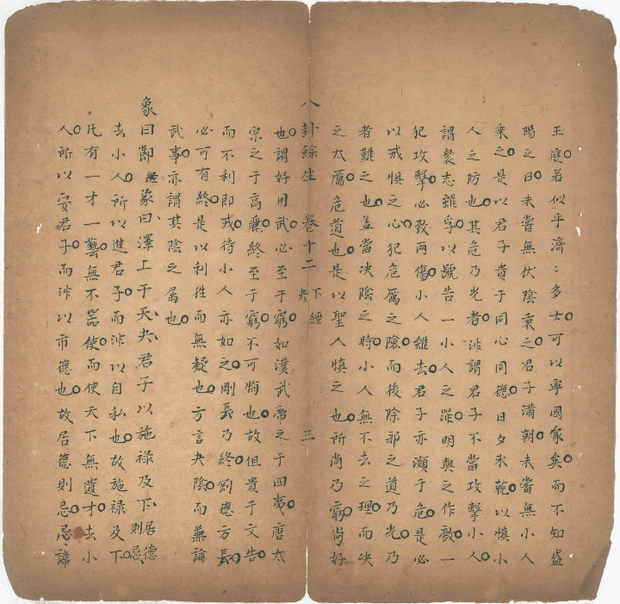 王庭若似乎濟濟多士可以寧國家矣而不知盛
陽之日未嘗無伏陰乘之君子滿朝未嘗無小人
乘之是以君子貴于同心同德日夕氷兢以慎小
人之防也其危乃光者非謂君子不當攻擊小人
謂衆志雖孚以號告一小人之罪明與之作敵一
犯攻擊必致兩傷小人雖去君子亦瀕于危是必
以戒惧之心犯危厲之險而後除邪之道乃光乃
者難之也盖當决陰之時小人無不去之理而决
之太厲危道也是以聖人慎之也所尚乃窮尚好
八卦餘生 卷十二 下經 夬 三
也謂好用武必至于窮如漢武帝之于四夷唐太
宗之于高麗終至于窮不可悔也故但貴于文告
而不利即戎待小人亦如之剛長乃終剛德方長
必可有終是以利往而無疑也方言夬陰而兼論
武事亦謂其陰之屬也
象曰 象曰澤上于天夬君子以施禄及下居德則忌
去小人所以進君子而非以自私也故施禄及下
凡有一才一藝無不器使而使天下無遺才去小
人所以安君子而非以市德也故居德則忌忌諱